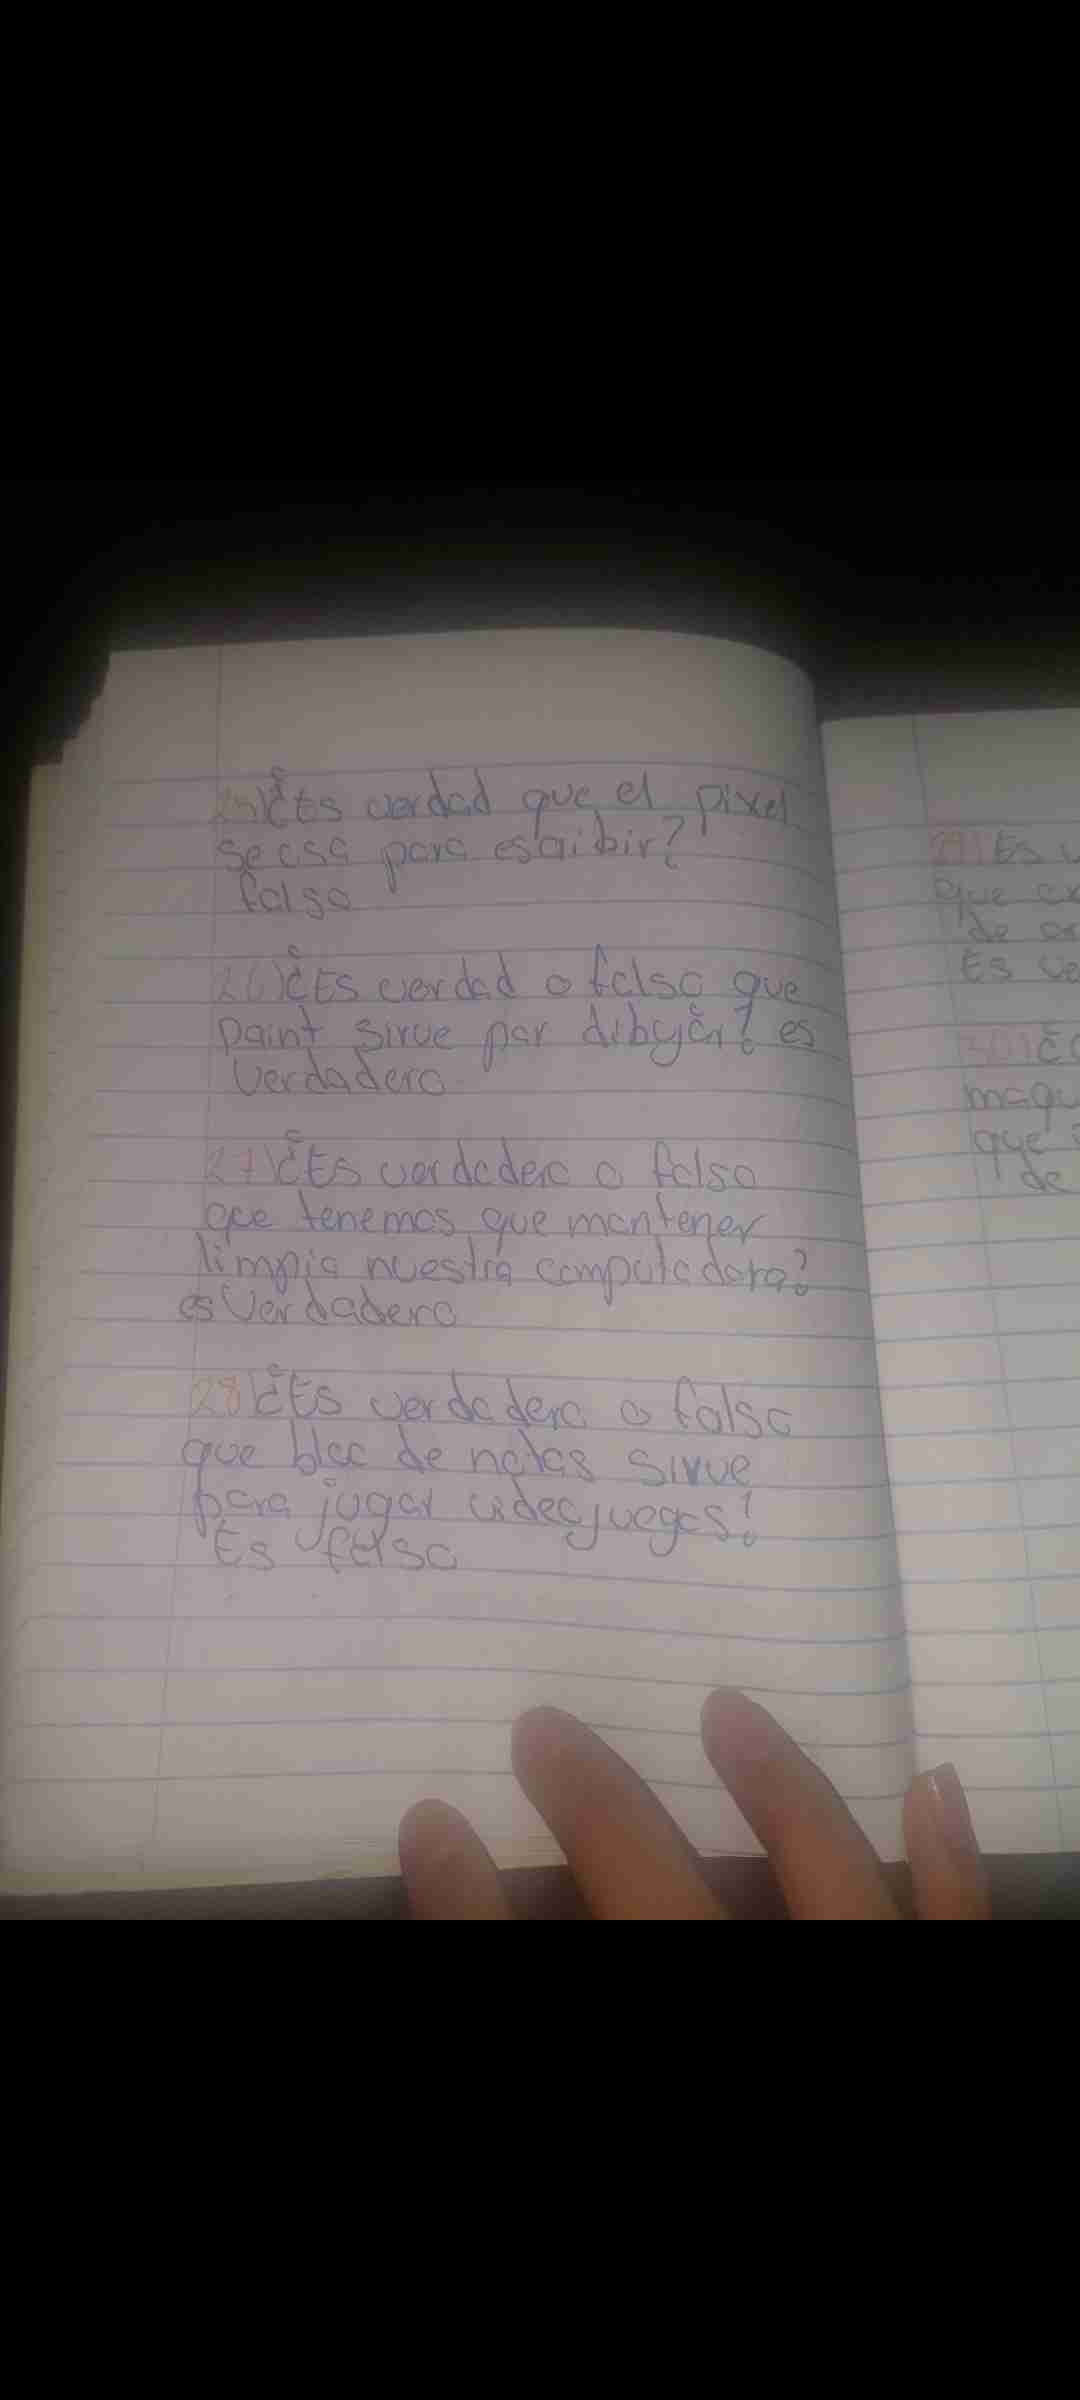 25) ¿Es verdad que el pixel
se usa para escribir?
falso
26) ¿Es verdad o falso que
paint sirve par dibujar? es
verdadero
27) ¿Es verdadero o falso
que tenemos que mantener
limpia nuestra computadora?
es verdadero
28) ¿Es verdadero o falso
que bloc de notas sirve
para jugar videojuegos?
Es falso
29) Es
que
de
Es
30)
que
de